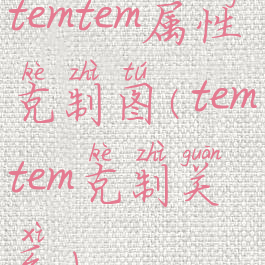 temtem属性
kè zhì tú
克制图(tem
kè zhì guān
tem克制关
xì
系)